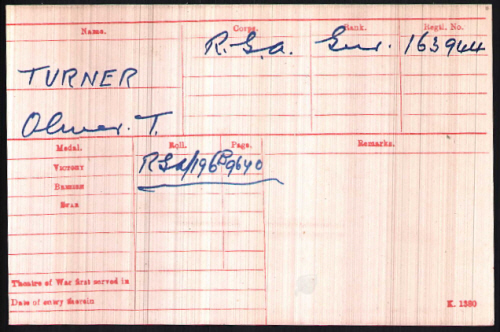 Name. Corps. Rank. Regtl. No.
R.G.A. Gnr. 163944
TURNER
Oliver. T.
Medal. Roll. Page. Remarks.
Victory RGA/196B 9640
British
Star
Theatre of War first served in
Date of entry therein
K. 1380